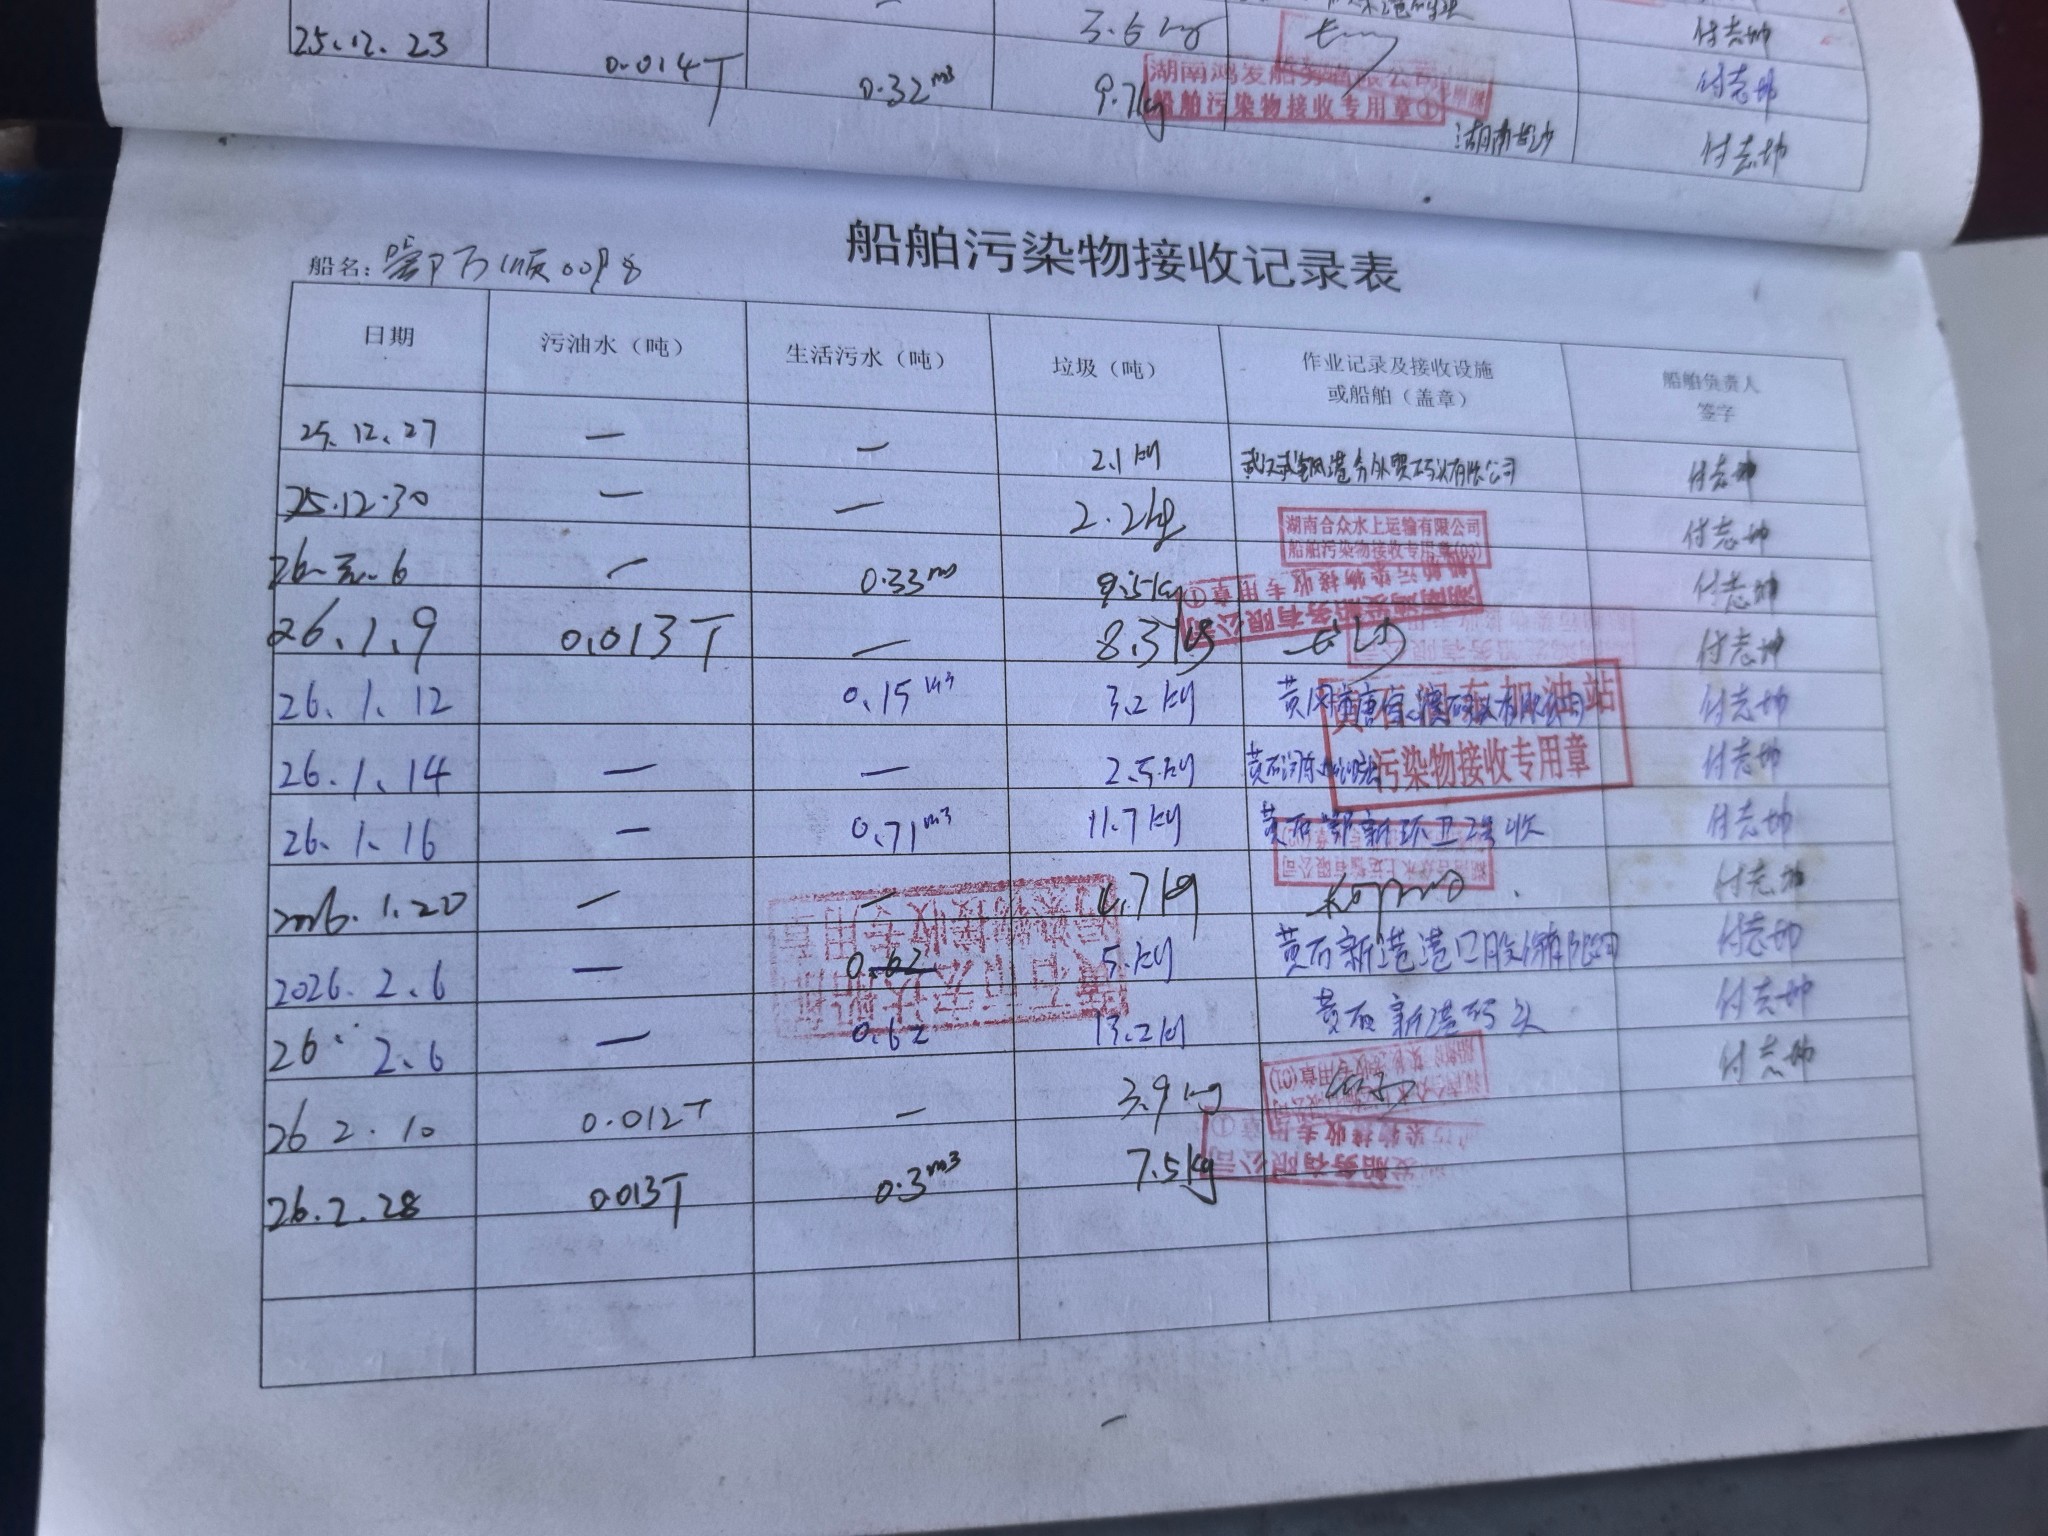 25.12.23 0.014T 0.32m³ 9.7kg 付志坤
湖南鸿发船务有限公司
船舶污染物接收专用章①
付志坤
湖南长沙 付志坤
船舶污染物接收记录表
船名:
日期 污油水（吨） 生活污水（吨） 垃圾（吨） 作业记录及接收设施或船舶（盖章） 船舶负责人签字
25.12.27 — — 2.1kg 付志坤
25.12.30 — — 2.2kg 付志坤
湖南合众水上运输有限公司
船舶污染物接收专用章(03)
26.元.6 — 0.33m³ 9.5kg 付志坤
26.1.9 0.013T — 8.3kg 长沙 付志坤
26.1.12 0.15m³ 3.2kg 付志坤
26.1.14 — — 2.5kg 付志坤
污染物接收专用章
26.1.16 — 0.71m³ 11.7kg 黄石鄂新环卫接收 付志坤
2026.1.20 — — 4.7kg 付志坤
2026.2.6 — 0.62 5.kg 黄石新港港口股份有限公司 付志坤
26.2.6 — 0.62 13.2kg 黄石新港码头 付志坤
26.2.10 0.012T — 3.9kg 付志坤
26.2.28 0.013T 0.3m³ 7.5kg